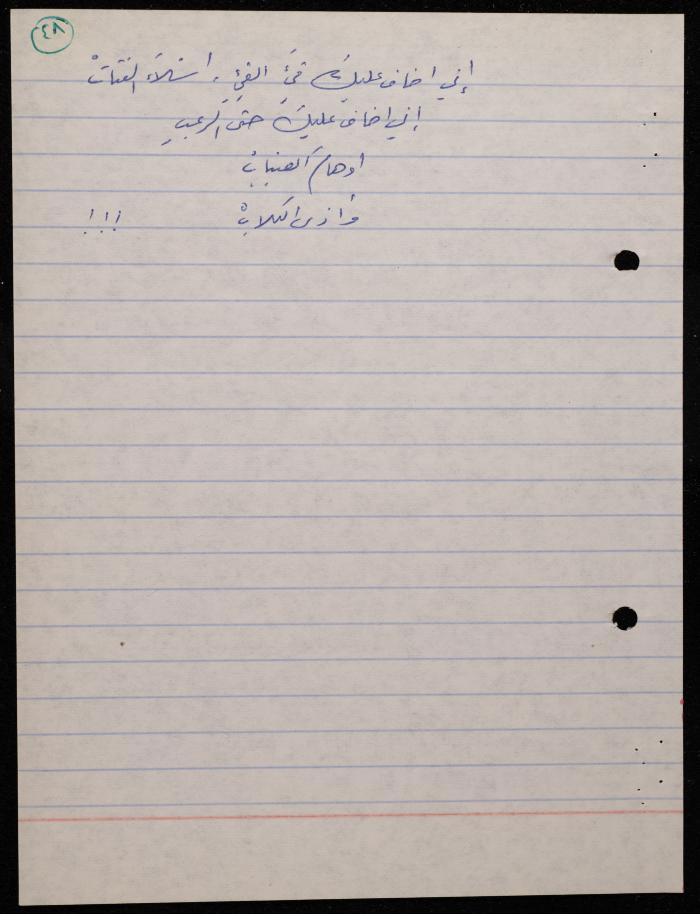 ٤٨
إني اخاف عليكَ قيَّ القيِّ، أشلاَء الفتاتْ
إني اخاف عليكَ حتى الرعبِ
أوهامَ الضبابْ
وأذى الكلابْ !!!